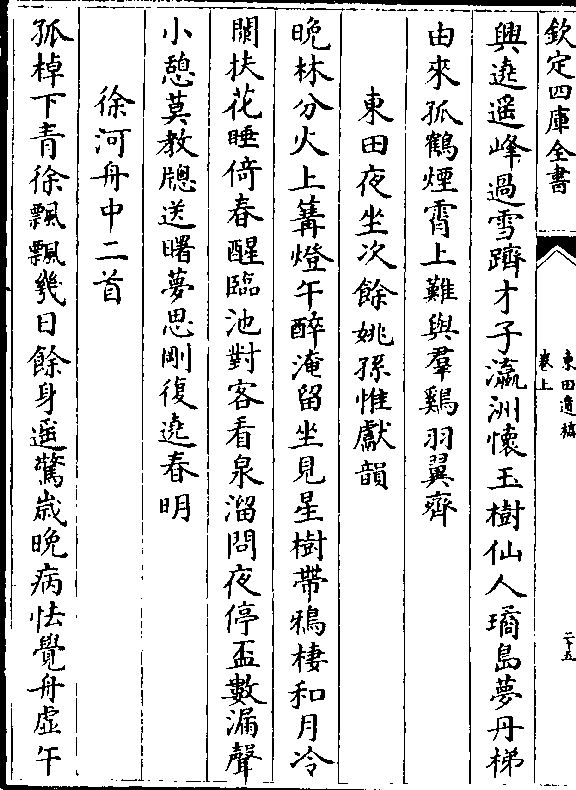 欽定四庫全書
東田遺稿
卷上
二十五
興遶遥峰過雪躋才子瀛洲懷玉樹仙人璚島夢丹梯
由來孤鶴煙霄上難與羣鷄羽翼齊
東田夜坐次餘姚孫惟獻韻
晩林分火上篝燈午醉淹留坐見星樹帶鴉棲和月冷
闌扶花睡倚春醒臨池對客看泉溜問夜停盃數漏聲
小憩莫教牕送曙夢思剛復遶春明
徐河舟中二首
孤棹下青徐飄飄幾日餘身遥驚歳晚病怯覺舟虛午